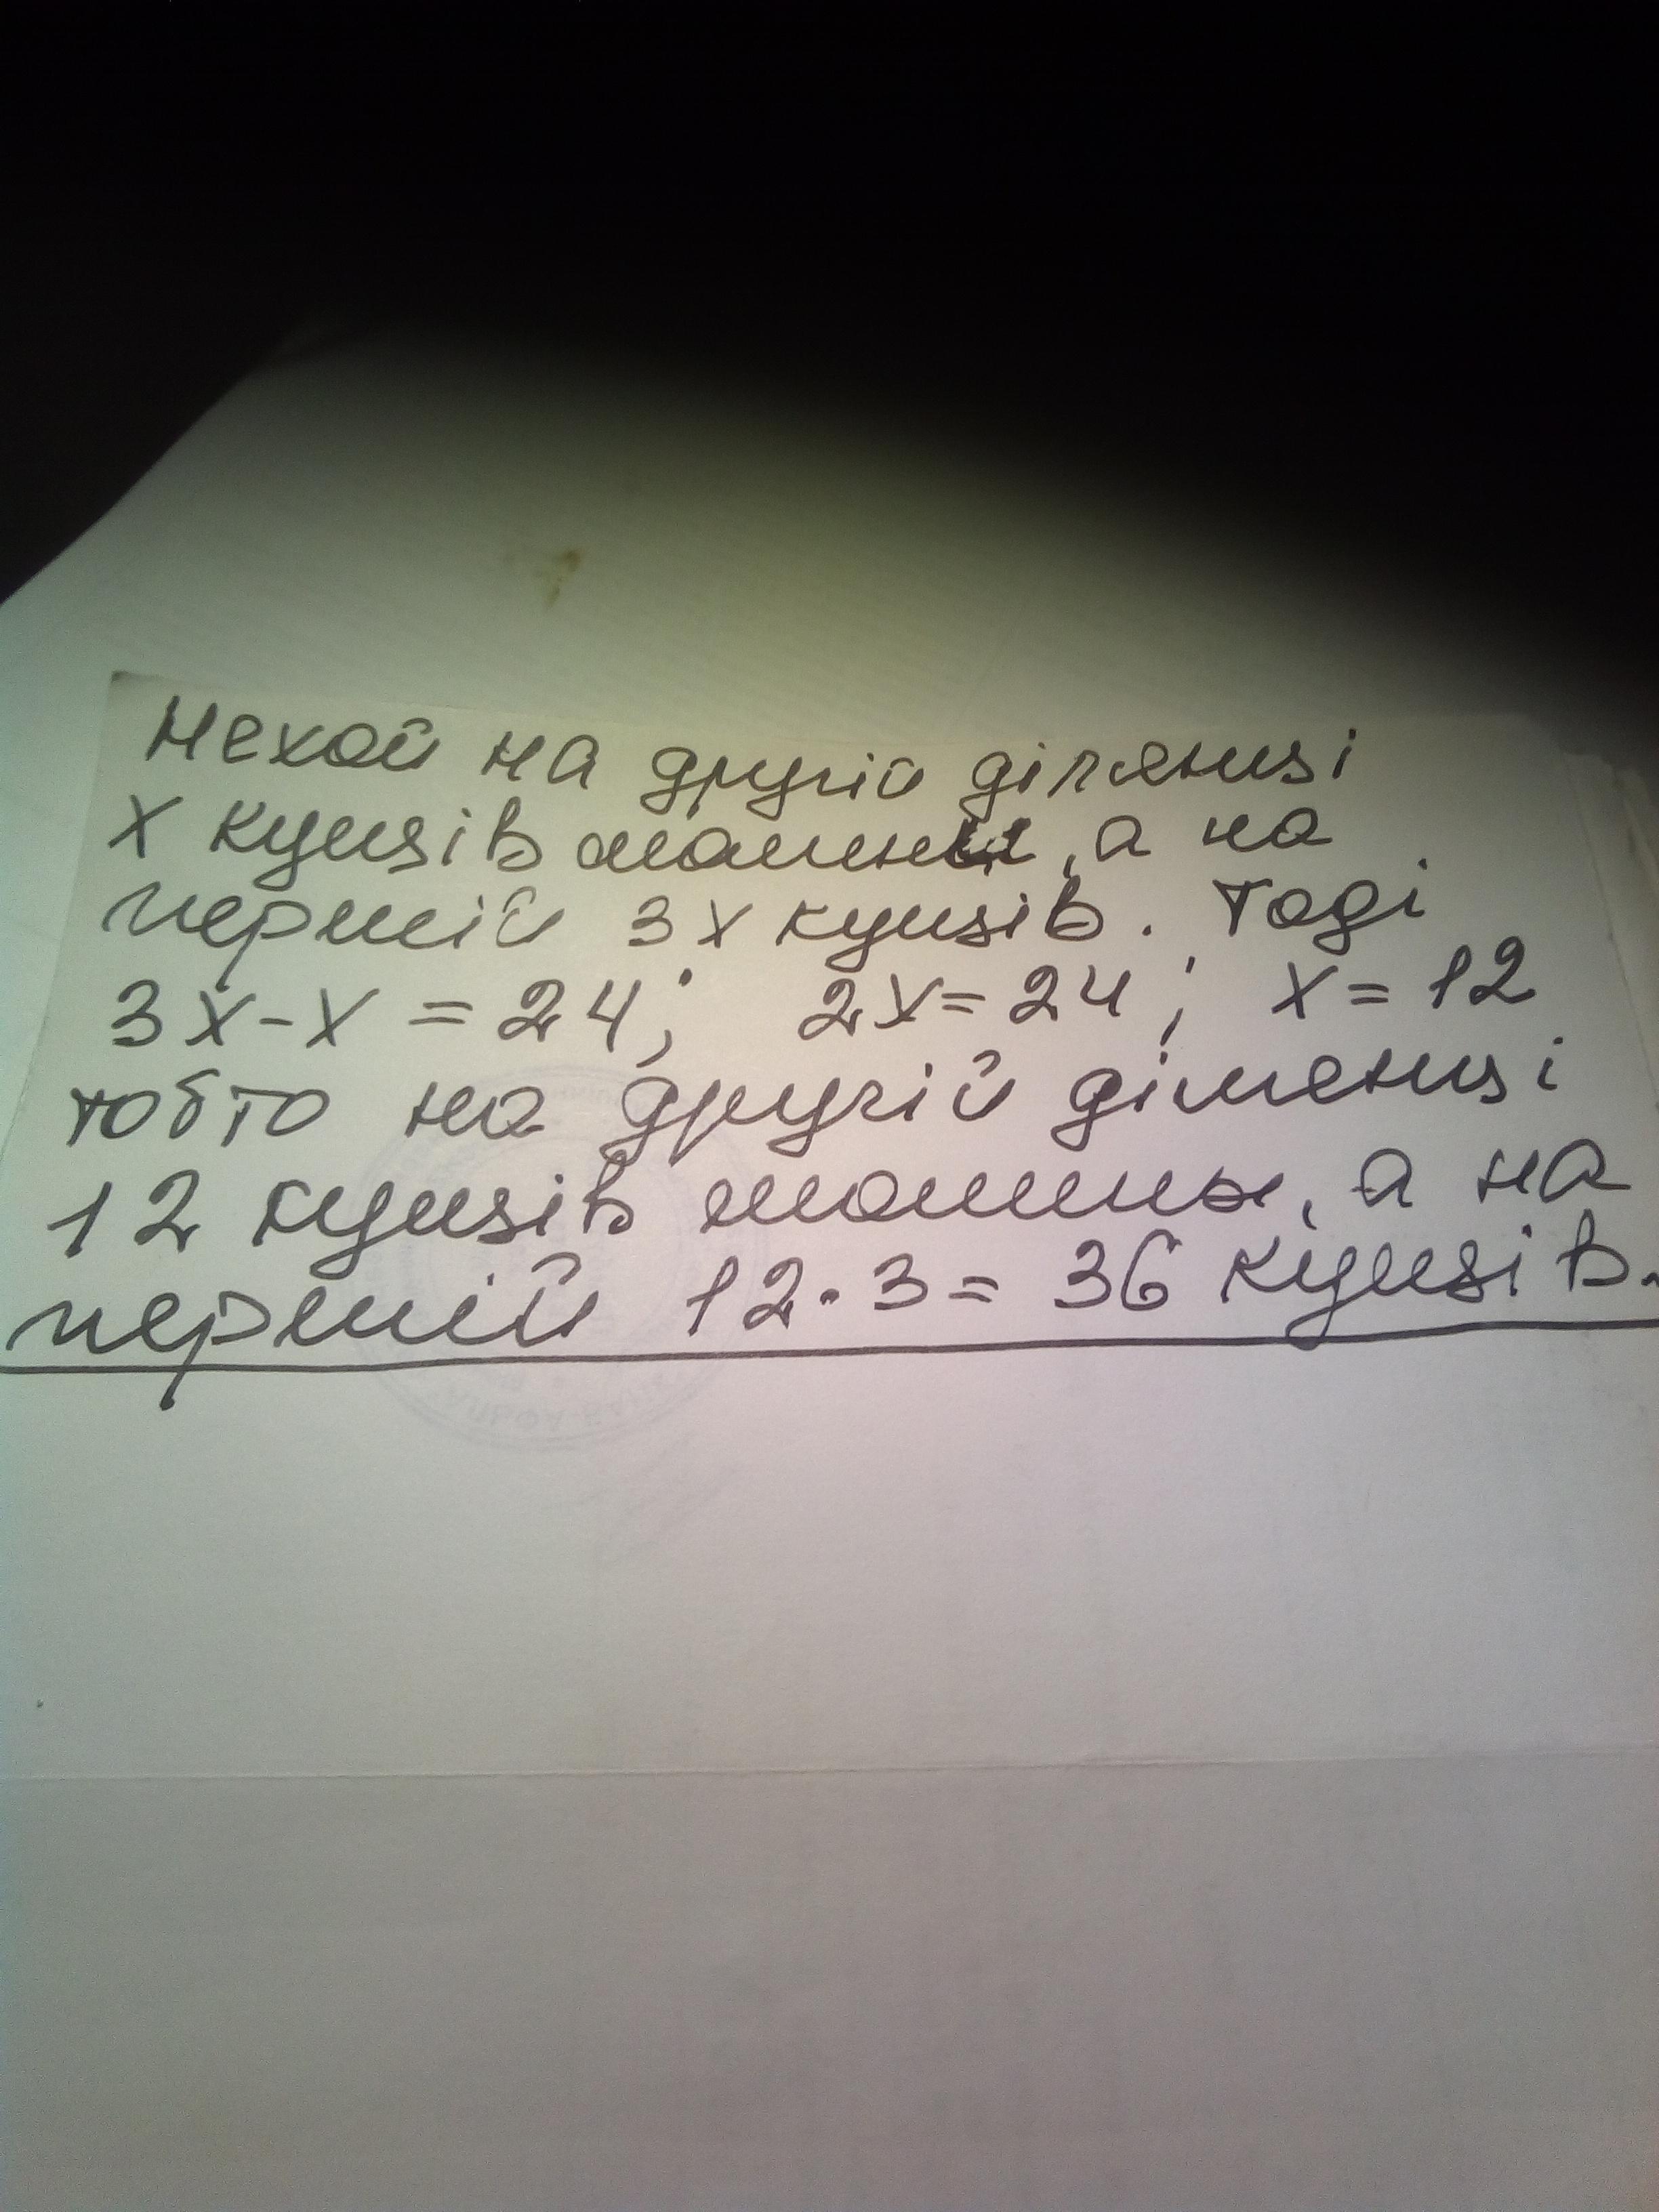 Нехай на другій ділянці
х кущів малини, а на
першій 3х кущів. Тоді
3х-х = 24; 2х=24; х=12
тобто на другій ділянці
12 кущів малини, а на
першій 12·3= 36 кущів.